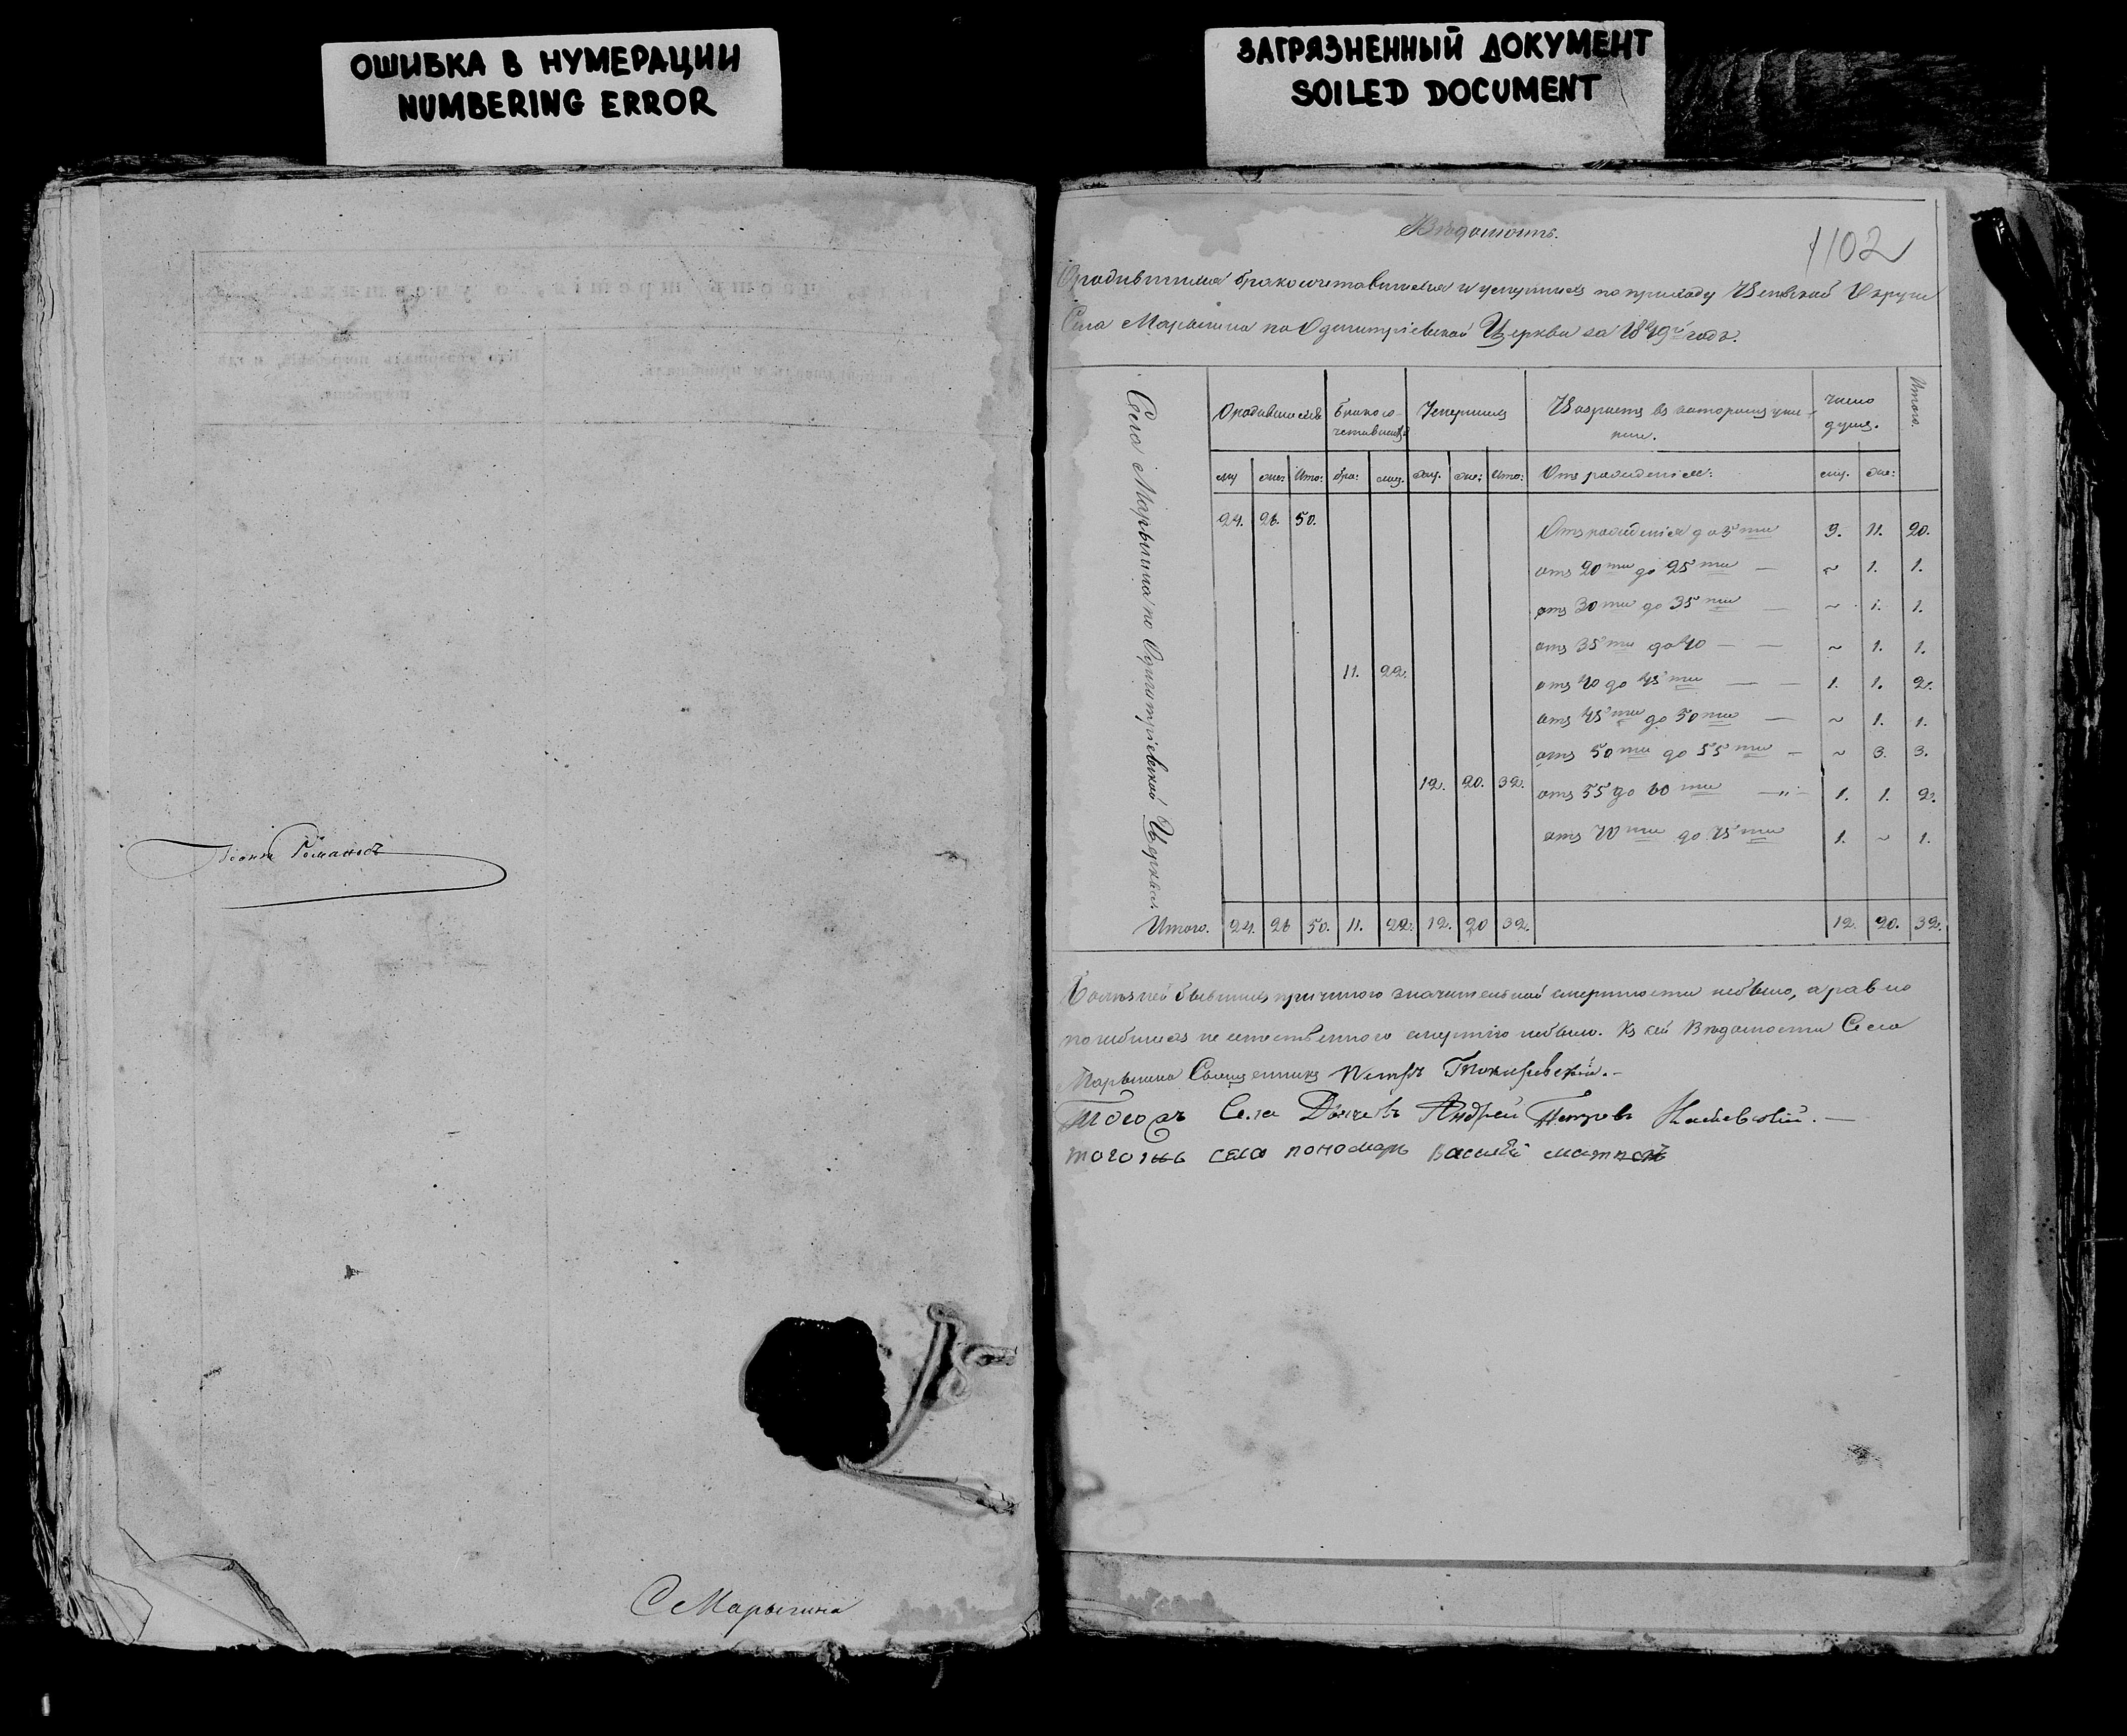 ОШИБКА В НУМЕРАЦИИ
NUMBERING ERROR
ЗАГРЯЗНЕННЫЙ ДОКУМЕНТ
SOILED DOCUMENT
Романовъ
С Марьина
Вѣдомость.
1102
О родившихся бракосочетавшихся и умершихъ по приходу Округи
Села Марьина по Одигитріевской Церкви за 1849й годъ.
Село Марьина по Одигитріевской Церкви
О родившихся Бракосо- Умершихъ Возрастъ въ которомъ уме- число Итого.
четавшихся рли. душъ.
му жен: Ито: бра: лиц. муж. жен: Ито: Отъ рожденія: муж. жен:
24. 26. 50.
Отъ рожденія до 5ти 9. 11. 20.
отъ 20ти до 25ти — ~ 1. 1.
отъ 30ти до 35ти — ~ 1. 1.
отъ 35ти до 40 — — ~ 1. 1.
11. 22.
отъ 40 до 45ти — — 1. 1. 2.
отъ 45ти до 50ти — ~ 1. 1.
отъ 50ти до 55ти — ~ 3. 3.
12. 20. 32.
отъ 55 до 60ти —"— 1. 1. 2.
отъ 70ти до 75ти 1. ~ 1.
Итого. 24. 26 50. 11. 22. 12. 20 32. 12. 20. 32.
Болѣзней бывшихъ причиною значительной смертности небыло, а равно
погибшихъ не естественного смертію небыло. Къ сей Вѣдомости Села
Марьина Священникъ Петръ
Тогожъ Села Діаконъ Андрей Петровъ
тогожь села пономарь Василій